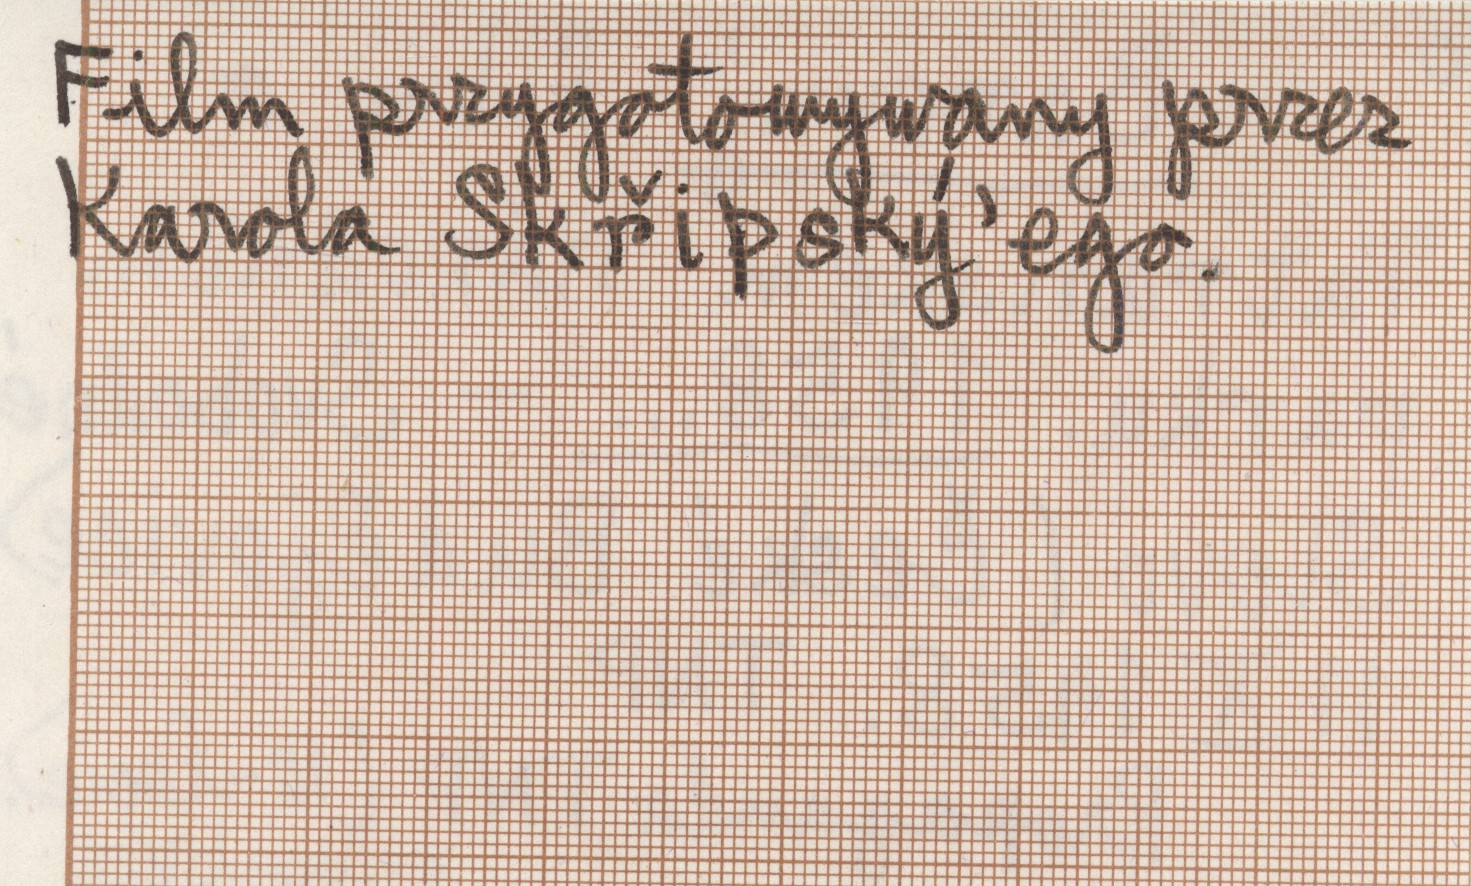 Film przygotowywany przez
Karola Skřipský'ego.